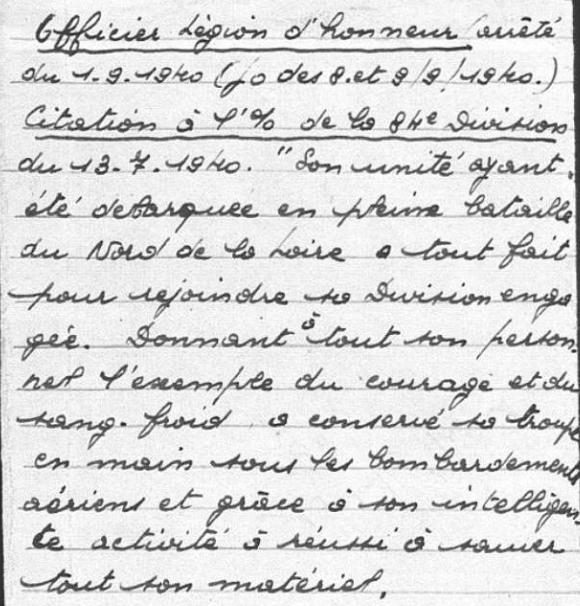 Officier Légion d'honneur (arrêté
du 1.9.1940 (Jo des 8.et 9/9/1940.)
Citation à l'% de la 84e Division
du 13.7.1940. "Son unité ayant
été debarquée en pleine bataille
du Nord de la Loire a tout fait
pour rejoindre sa Division enga
gée. Donnant à tout son person-
nel l'exemple du courage et du
sang-froid a conservé sa troupe
en main sous les bombardements
aériens et grâce à son intelligen
te activité à réussi à sauver
tout son matériel.